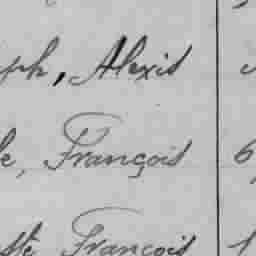 ph, Alexis
le, François 6
ste François 1